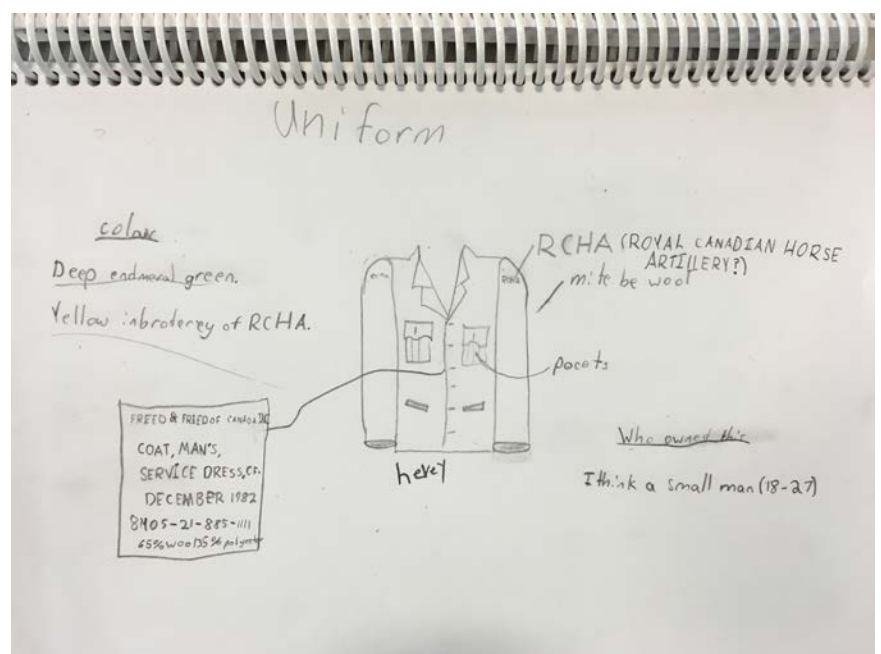 Uniform
colour
Deep endmeral green.
Yellow inbroterey of RCHA.
RCHA (ROYAL CANADIAN HORSE
ARTILLERY?)
mite be wool
pocets
FREED & FREED OF CANADA
COAT, MAN'S,
SERVICE DRESS, CF.
DECEMBER 1982
8405-21-885-1111
65% wool 35% polyester
hevey
Who owned this
I think a small man (18-27)